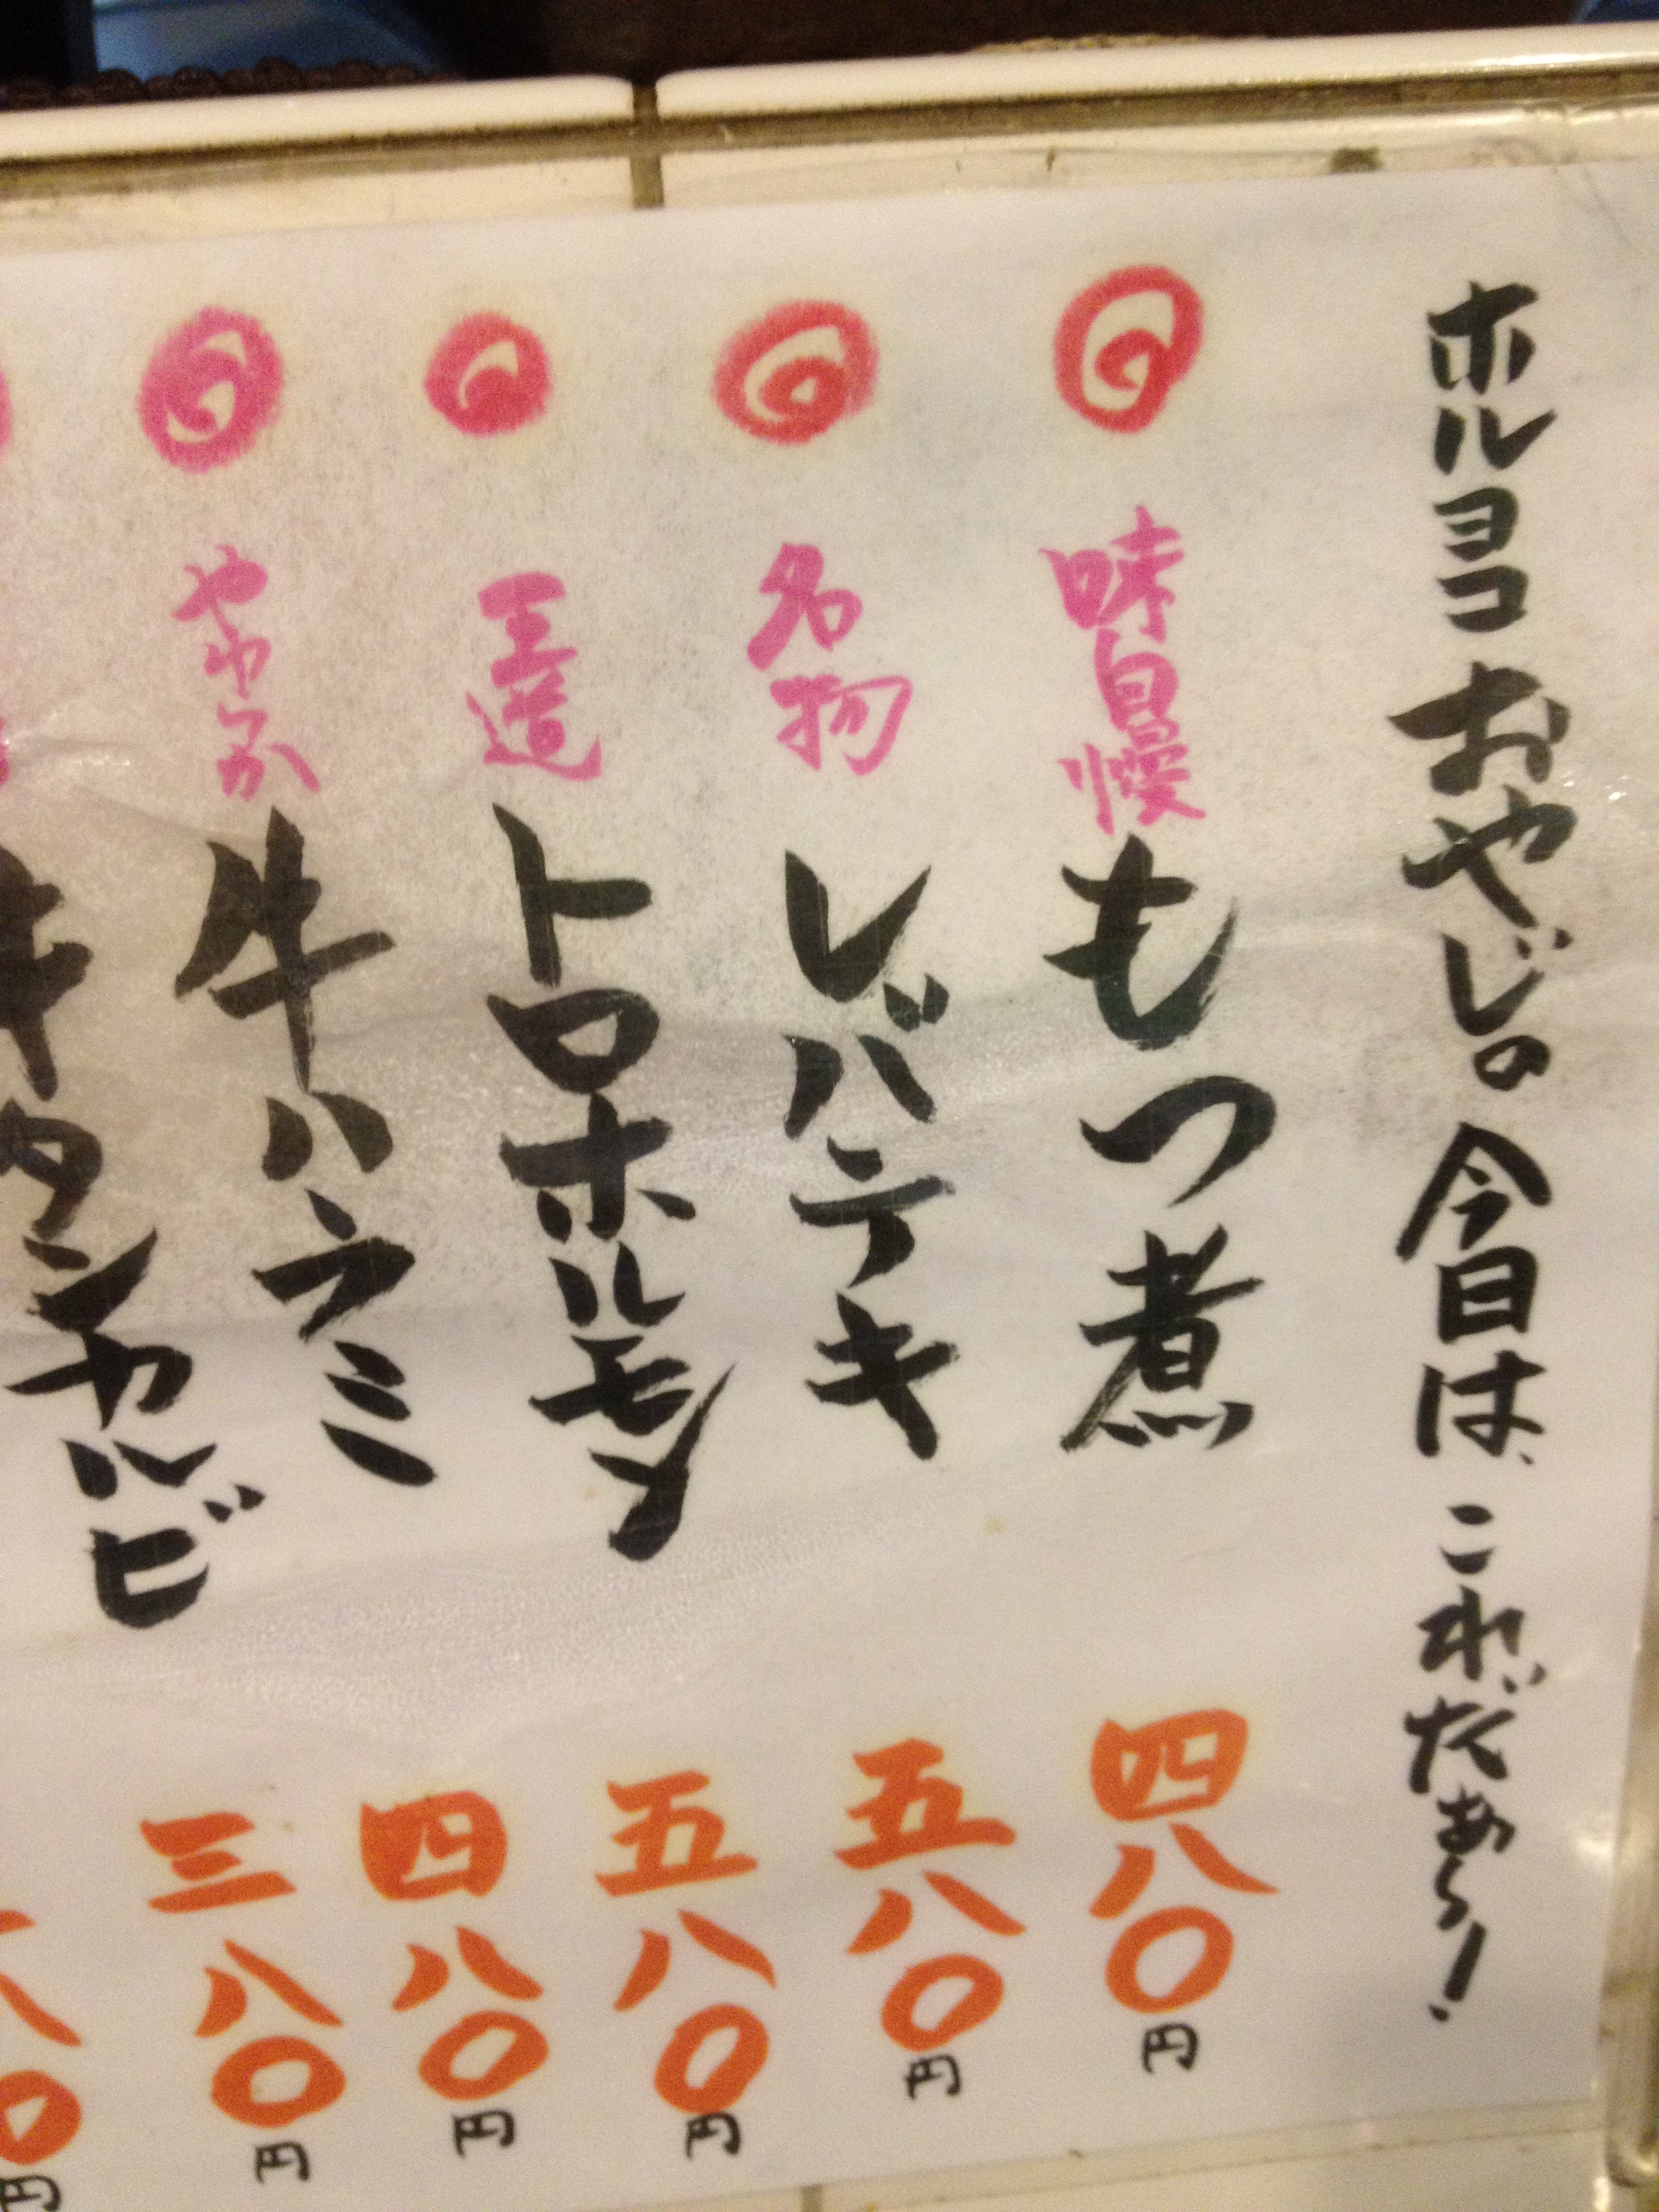 ホルヨコおやじ。今日は、これだぁ〜!
味自慢 もつ煮 四八〇円
名物 レバテキ 五八〇円
王道 トロホルモン 五八〇円
やわらか 牛ハラミ 四八〇円
タンカルビ 三八〇円
八〇円